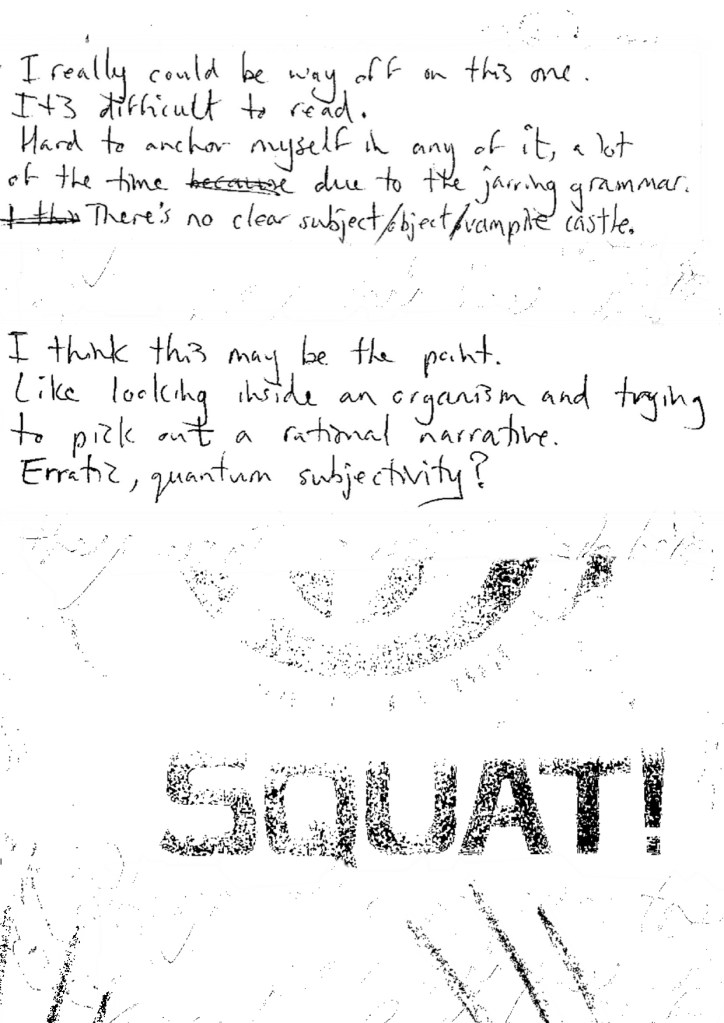 I really could be way off on this one.
It's difficult to read.
Hard to anchor myself in any of it, a lot
of the time because due to the jarring grammar.
I thin There's no clear subject/object/vampire castle.
I think this may be the point.
Like looking inside an organism and trying
to pick out a rational narrative.
Erratic, quantum subjectivity?
SQUAT!